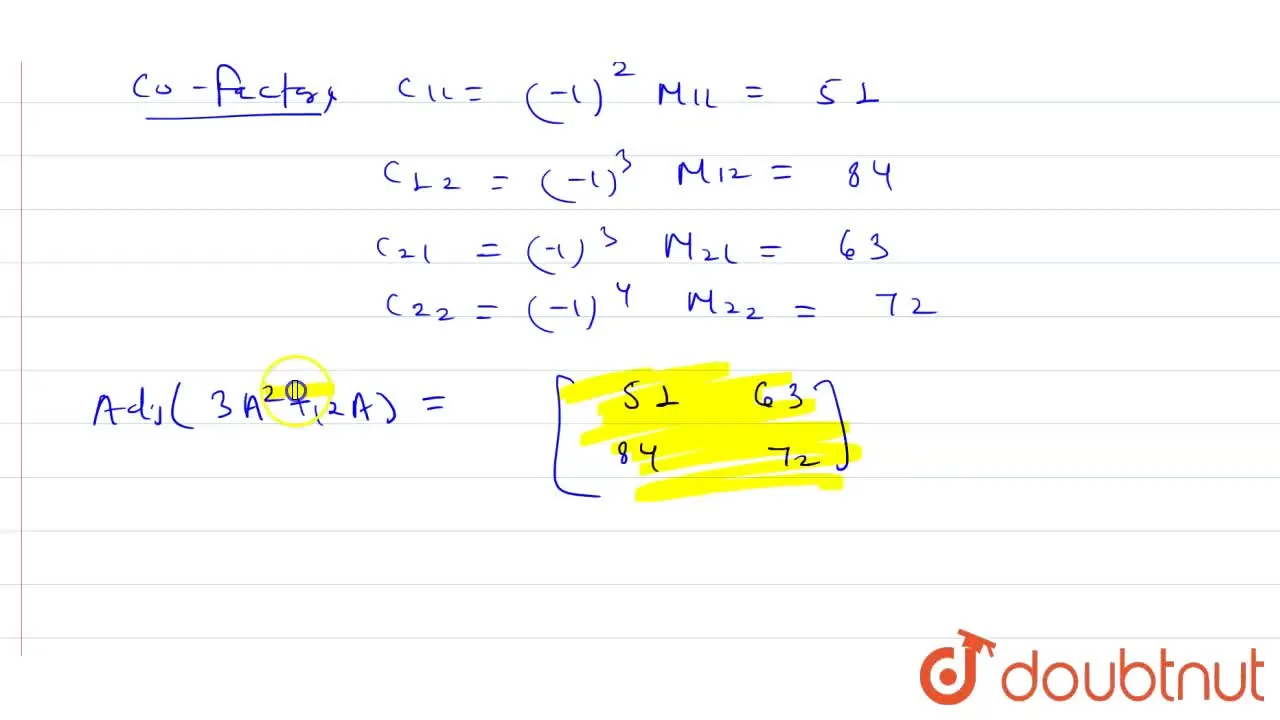 Co-factors C11 = (-1)² M11 = 51
C12 = (-1)³ M12 = 84
C21 = (-1)³ M21 = 63
C22 = (-1)⁴ M22 = 72
Adj( 3A² + 12A) = [ 51 63
84 72 ]
doubtnut